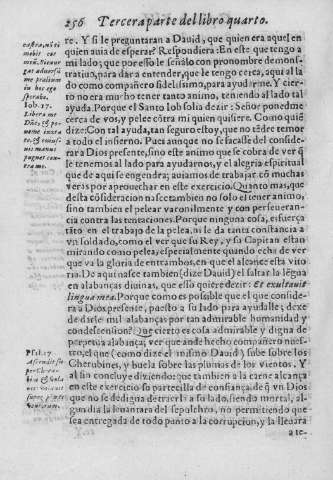 256 Tercera parte del libro quarto.
re. Y si le preguntaran a Dauid, que quien era en
quien auia de esperar? Respondiera: En este que tengo a
mi lado; que por esso le señalò con pronombre demons-
tratiuo, para dar a entender, que le tengo cerca, aqui al la
do como compañero fidelissimo, para ayudarme. Y cier-
to no era mucho tener tanto animo, teniendo al lado tal
ayuda. Porque el Santo Iob solia dezir: Señor ponedme
cerca de vos, y pelee côtra mi quien quisiere. Como quiê
dize: Con tal ayuda, tan seguro estoy, que no tẽdrè temor
a todo el infierno. Pues aunque no se sacasse del conside-
rar a Dios presente, sino este animo que se cobra de ver q̃
le tenemos al lado para ayudarnos, y el alegria espiritual
que de aqui se engendra; auiamos de trabajar cõ muchas
veras por aprouechar en este exercicio. Quanto mas, que
desta cõsideracion nasce tambien no solo el tener animo,
sino tambien el pelear varonilmente y con perseueran-
cia contra las tentaciones. Porque ninguna cosa, esfuerça
tãto en el trabajo de la pelea, ni le da tanta constancia a
vn soldado, como el ver que su Rey, y su Capitan estan
mirando como pelea, especialmente quando echa de ver
que va la gloria de entrambos, en que el alcance esta vito
ria. De aqui nasce tambien (dize Dauid) el saltar la lẽgua
en alabanças diuinas, que esso quiere dezir: Et exultauit
lingua mea. Porque como es posible que el que conside-
ra a Dios presente, puesto a su lado para ayudalle, dexe
de darle mil alabanças por tan admirable humanidad y
condescension? Que cierto es cosa admirable y digna de
perpetua alabança, ver que ande hecho compañero nues-
tro, el que (como dize el mismo Dauid) sube sobre los
Cherubines, y buela sobre las plumas de los vientos. Y
al fin concluye diziendo: que tambien a la carne alcança
en este exercicio su partezilla de confiança, de q̃ vn Dios
que no se dedigna de traerla a su lado, siendo mortal, al-
gun dia la leuantara del sepulchro, no permitiendo que
sea entregada de todo punto a la corrupcion, y la lleuara
a te-
Iob. 17.
Libera me
Psal. 17